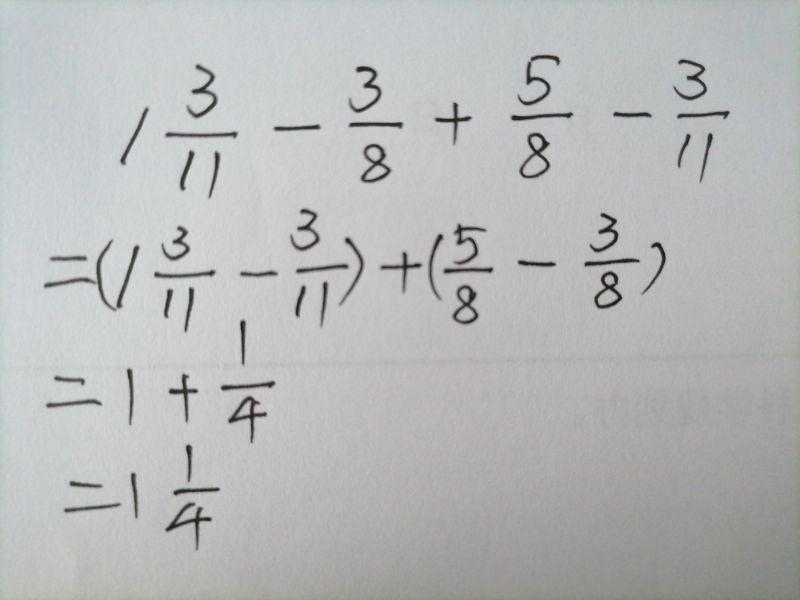 1 3/11 - 3/8 + 5/8 - 3/11
=(1 3/11 - 3/11)+(5/8 - 3/8)
=1+1/4
=1 1/4